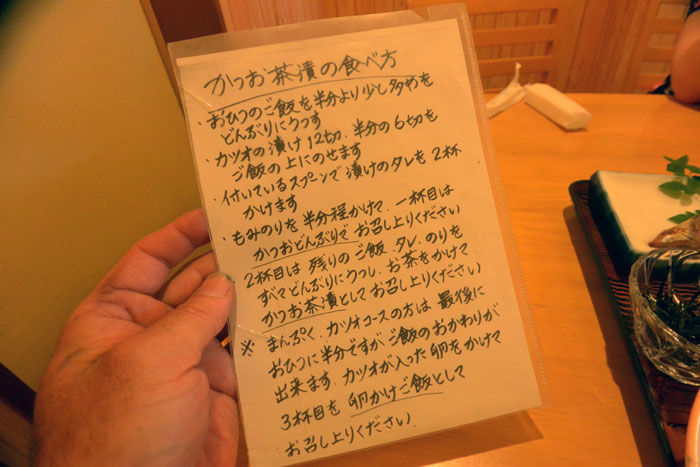 かつお茶漬の食べ方
・おひつのご飯を半分より少し多めを
どんぶりにうつす
・カツオの漬け12切、半分の6切を
ご飯の上にのせます
・付いているスプーンで漬けのタレを2杯
かけます
・もみのりを半分程かけて、一杯目は
かつおどんぶりでお召し上りください
2杯目は残りのご飯、タレ、のりを
すべてどんぶりにうつし、お茶をかけて
かつお茶漬としてお召し上りください
※まんぷく、カツオコースの方は最後に
おひつに半分ですがご飯のおかわりが
出来ます、カツオが入った卵をかけて
3杯目を卵かけご飯として
お召し上りください.